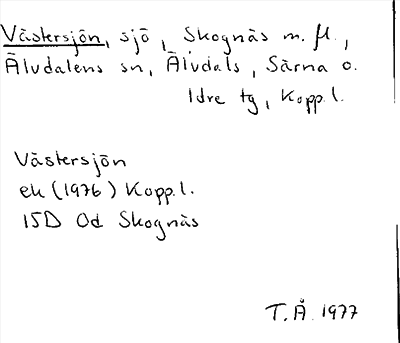 Västersjön, sjö, Skognäs m. fl.,
Älvdalens sn, Älvdals, Särna o.
Idre tg, Kopp.l.
Västersjön
ek (1976) Kopp.l.
15D 0d Skognäs
T.Å. 1977